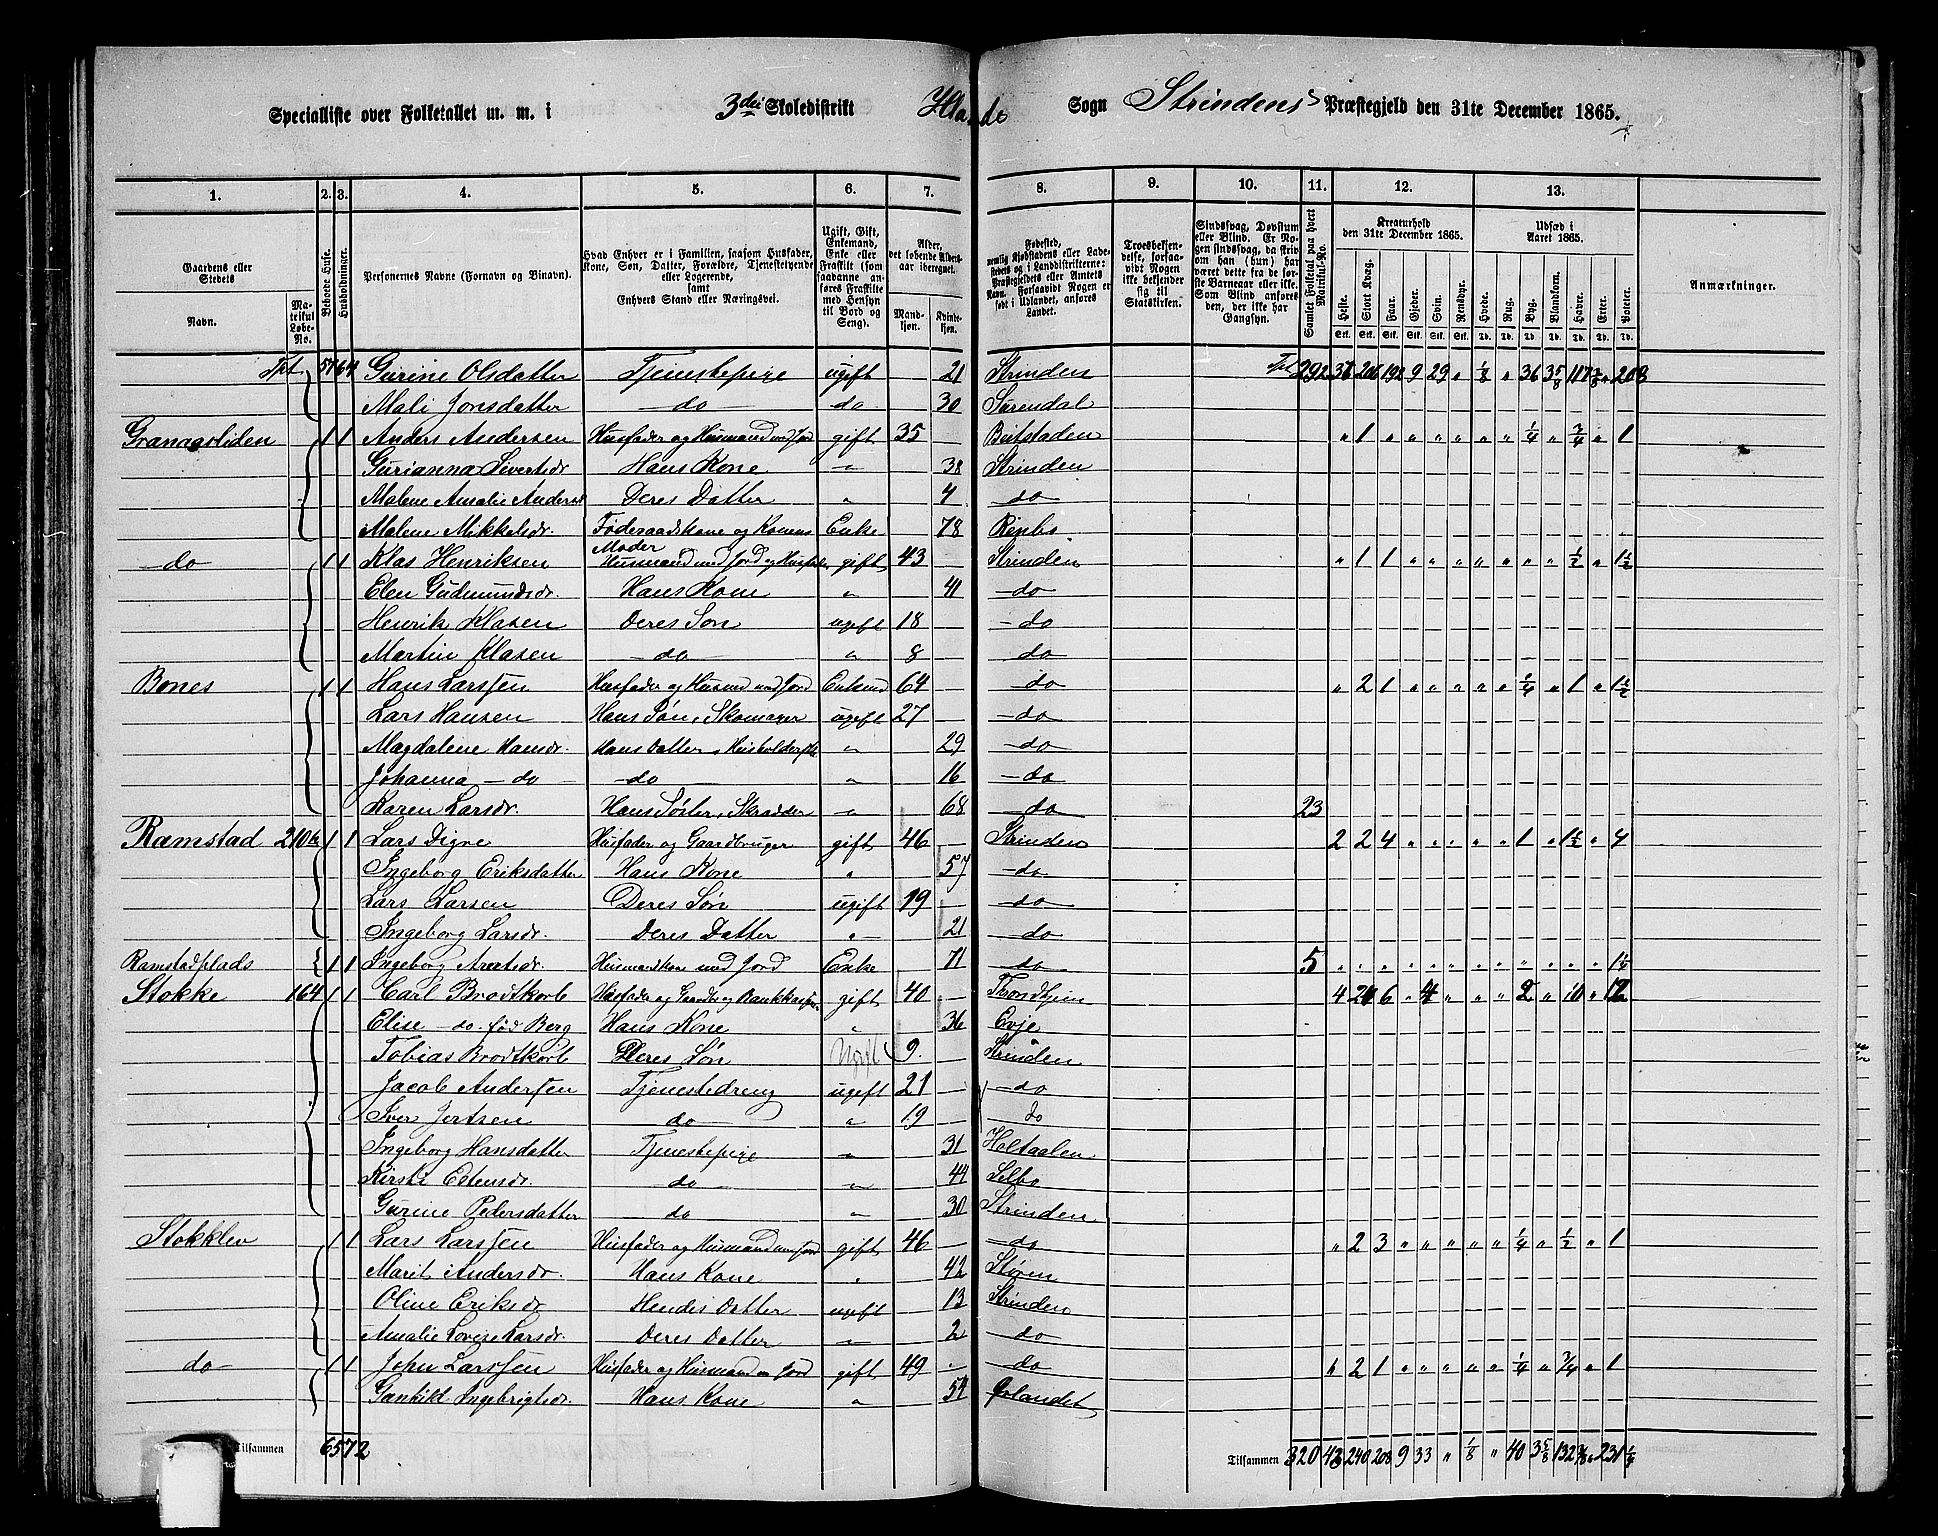 Specialliste over Folketallet m. m. i 3die Skoledistrikt Sogn Strindens Præstegjeld den 31te December 1865.
1. 2. 3. 4. 5. 6. 7. 8. 9. 10. 11. 12. 13.
Gaardens eller Stedets Navn. Matrikul Løbe-No. Beboede Huse. Husholdninger. Personernes Navne (Fornavn og Binavn). Hvad Enhver er i Familien, saasom Husfader, Kone, Søn, Datter, Forældre, Tjenestetyende eller Logerende, samt Enhvers Stand eller Næringsvei. Ugift, Gift, Enkemand, Enke eller Fraskilt (som saadanne anføres Fraskilte med Hensyn til Bord og Seng). Alder, det løbende Alders-aar iberegnet. Mandkjøn. Kvindekjøn.
Fødested, nemlig Kjøbstadens eller Ladestedets og i Landdistrikterne: Præstegjeldets eller Amtets Navn. Forsaavidt Nogen er født i Udlandet, anføres Landet. Troesbekjendelse, forsaavidt Nogen ikke bekjender sig til Statskirken. Sindssvag, Døvstum eller Blind. Samlet Folketal paa hvert Matrikul-No. Kreaturhold den 31te December 1865. Udsæd i Aaret 1865. Anmærkninger.
Heste. Stort Kvæg. Faar. Gjeder. Svin. Rensdyr. Hvede. Rug. Byg. Blandkorn. Havre. Erter. Poteter.
Tpt. 57 64 Gurine Olsdatter Tjenestepige ugift 21 Strinden Tpt 292 9 29 „ 1/8 „ 36 3 5/8
Mali Jonsdatter do do 30 Surendal
Granaasliden 1 1 Anders Andersen Husfader og Husmand med Jord gift 35 Beitstaden „ 1 „ „ „ „ „ „ 1/4 „ 3/4 „ 1
Gurianna Sivertsdr. Hans Kone „ 38 Strinden
Malene Amalie Andersd. Deres Datter „ 4 do
Malene Mikkelsdr. Føderaadskone og Konens Moder Enke 78
do 1 1 Klas Henriksen Husmand med Jord og Husfader gift 43 Strinden „ 1 1 „ „ „ „ „ „ „ 1/2 „ 1 1/2
Elen Gudmundsdr. Hans Kone „ 41 do
Henrik Klasen Deres Søn ugift 18 do
Martin Klasen do „ 8 do
Bones 1 1 Hans Larssen Husfader og Husmd med Jord Enkemd 64 do „ 2 1 „ „ „ „ „ 1/4 „ 1 „ 1 1/2
Lars Hansen Hans Søn, Skomager ugift 27 do
Magdalene Hansdr. Hans Datter, Husholderske „ 29 do
Johanna do do „ 16 do
Karen Larsdr. Hans Søster, Skrædder „ 68 do 23
Ramstad 210 1 1 Lars Digre Husfader og Gaardbruger gift 46 Strinden 2 2 4 „ „ „ „ „ 1 „ 1 1/2 „ 4
Ingeborg Eriksdatter Hans Kone „ 57 do
Lars Larsen Deres Søn ugift 19 do
Ingeborg Larsdr. Deres Datter „ 21 do
Ramstadplads 1 1 Ingeborg Arntsdr. Husmandskone med Jord Enke 71 do 5 „ „ „ „ „ „ „ „ „ „ „ „ 1 1/4
Stokke 164 1 1 Carl Brodtkorb Husfader og Gaardbr og gift 40 Trondhjem 4 6 „ 4 „ „ „ 2 „ 10 „ 12
Elise do fød Berg Hans Kone „ 36 Evje
Tobias Brodtkorb Deres Søn Ugift 9. Strinden
Jacob Anderssen Tjenestedreng ugift 21 do
Iver Jertsen do „ 19 do
Ingeborg Hansdatter Tjenestepige „ 31 Holtaalen
Kirsti Estensdr. do „ 44 Selbo
Gurine Pedersdatter do „ 30 Strinden
Stokklen 1 1 Lars Larssen Husfader og Husmand med Jord gift 46 do „ 2 3 „ „ „ „ „ 1/4 „ 1/2 „ 1
Marit Andersdr. Hans Kone „ 42 Støren
Oline Eriksdr Hendes Datter ugift 13 Strinden
Amalie Lovise Larsdr. Deres Datter „ 2 do
do 1 1 John Larssen Husfader og Husmand m Jord gift 49 do „ 2 1 „ „ „ „ „ 1/4 „ 3/4 „ 1
Ingebrigtsdr. Hans Kone „ Ørlandet
Tilsammen 65 72 Tilsammen 320 43 240 208 9 33 „ 1/8 „ 40 3 5/8 132 „ 231 1/4